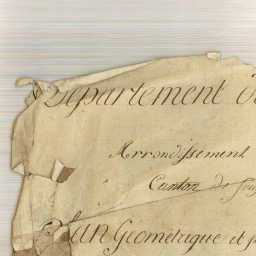 Département
Arrondissement
Canton de
Plan Géométrique et